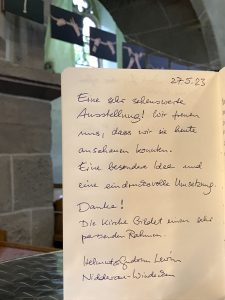 27.5.23
Eine sehr sehenswerte
Ausstellung! Wir freuen
uns, dass wir sie heute
anschauen konnten.
Eine besondere Idee und
eine eindrucksvolle Umsetzung.
Danke!
Die Kirche bildet einen sehr
passenden Rahmen.
Nidderau-Windecken